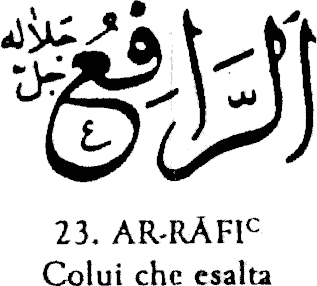 الرَّافِعُ
جل جلاله
23. AR-RĀFIᶜ
Colui che esalta